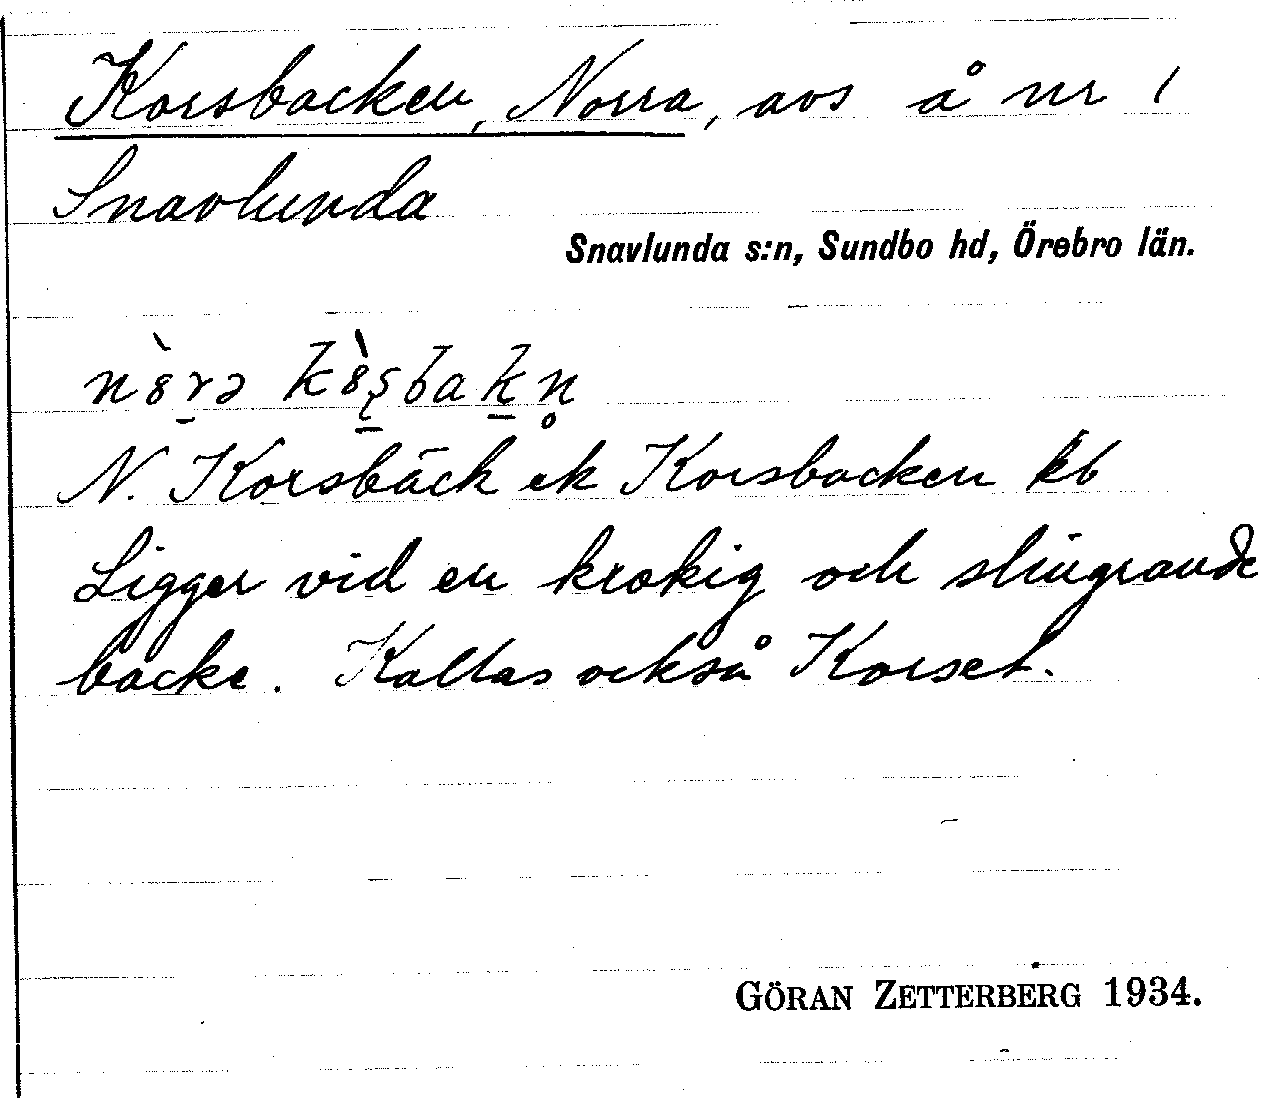 Korsbacken, Norra, avs å nr 1
Snavlunda
Snavlunda s:n, Sundbo hd, Örebro län.
N. Korsbäck ek Korsbacken kb
Ligger vid en krokig och slingrande
backe. Kallas också Korset.
GÖRAN ZETTERBERG 1934.